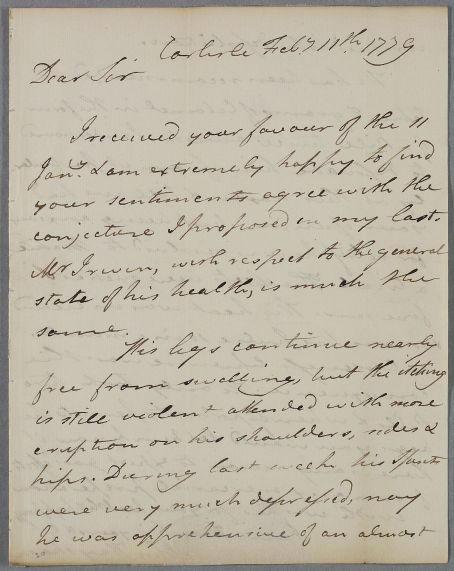 Carlisle Feby 11th 1779
Dear Sir
I received your favour of the 11
Jany. & am extremely happy to find
your sentiments agree with the
conjecture I proposed in my last.
Mr Irwin, with respect to the general
state of his health, is much the
same.
His legs continue nearly
free from swelling, but the itching
is still violent attended with more
eruption on his shoulders, sides &
hips. During last week his spirits
were very much depressed, nay
he was apprehensive of an almost